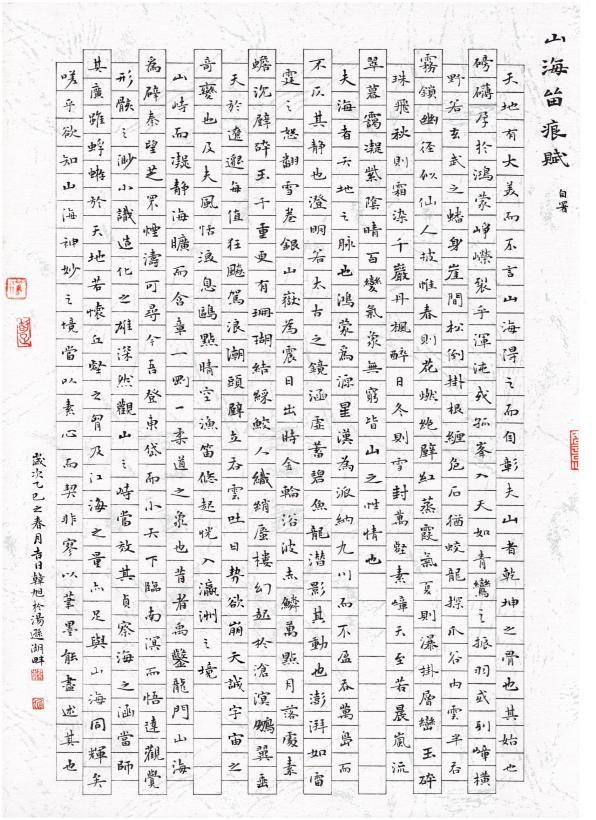 山海笛痕賦 自署
天地有大美而不言山海得之而自彰夫山者乾坤之骨也其始也
磅礴孕於鴻蒙崢嶸裂乎渾沌或孤峯入天如青鸞之振羽或列嶂橫
野若玄武之蟠身崖間松倒掛根纏危石猶蛟龍探爪谷内雲半吞
霧鎖幽徑似仙人披帷春則花燃絶壁紅蒸霞氣夏則瀑掛層巒玉碎
珠飛秋則霜染千巖丹楓醉日冬則雪封萬壑素嶂天至若晨嵐流
翠暮靄凝紫陰晴百變氣象無窮皆山之性情也
夫海者天地之脉也鴻蒙爲源星漢為派納九川而不盈吞萬島而
不仄其靜也澄明若太古之鏡涵虛蓄碧魚龍潛影其動也澎湃如雷
霆之怒翻雪卷銀山嶽為震日出時金輪浴波赤鱗萬點月落處素
蟾沉壁碎玉千重更有珊瑚結綵鮫人織綃蜃樓幻起於滄溟鵬翼垂
天於遼邈每值狂飈駕浪潮頭壁立吞雲吐日勢欲崩天誠宇宙之
奇變也及夫風恬浪息鷗點晴空漁笛悠起恍入瀛洲之境
山峙而凝靜海曠而含章一剛一柔道之象也昔者禹鑿龍門山海
為辟秦望芝罘煙濤可尋今吾登東岱而小天下臨南溟而悟達觀覺
形骸之渺小識造化之雄深然觀山之峙當放其貞察海之涵當師
其廣雖蜉蝣於天地若懷丘壑之胸及江海之量亦足與山海同輝矣
嗟乎欲知山海神妙之境當以素心而契非寒以筆墨能盡述其也
歲次乙巳之春月吉日韓旭於湯遜湖畔